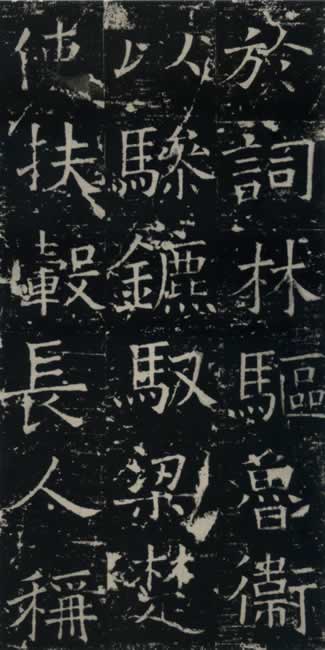 於詞林驅魯衛
以驂鑣馭梁楚
使扶轂長人稱